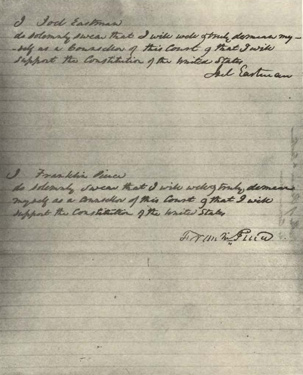 I Joel Eastman
do solemnly swear that I will well & truly demean my-
-self as a Counsellor of this Court & that I will
support the Constitution of the United States
Joel Eastman
I Franklin Pierce
do solemnly swear that I will well & truly demean
myself as a Counsellor of this Court & that I will
support the Constitution of the United States
Pierce